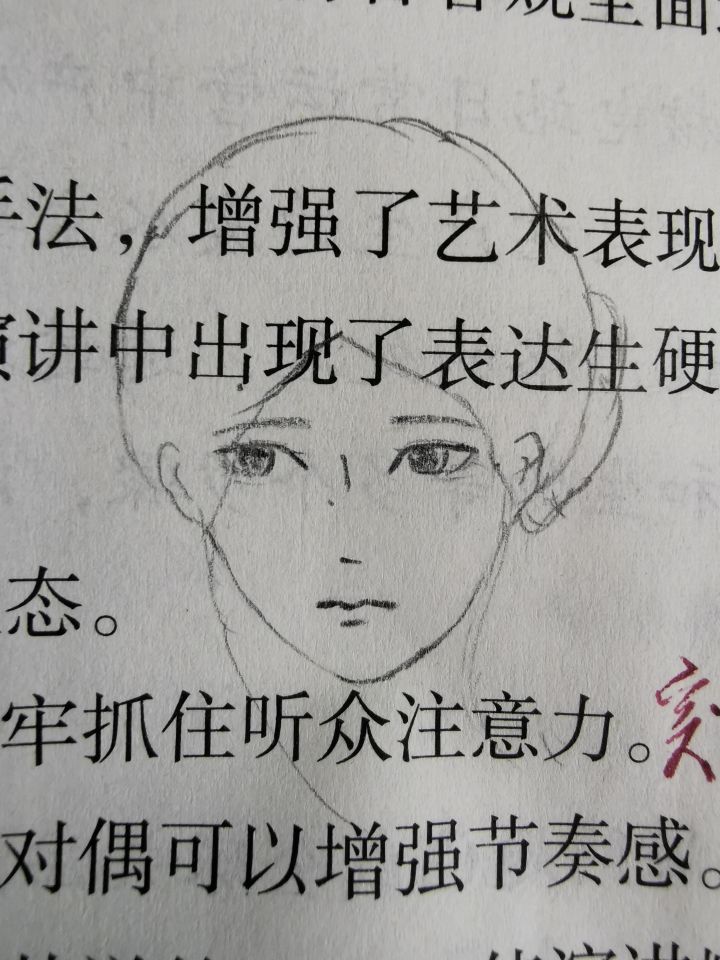 观全面
手法，增强了艺术表现
演讲中出现了表达生硬
态。
牢抓住听众注意力。突
对偶可以增强节奏感。